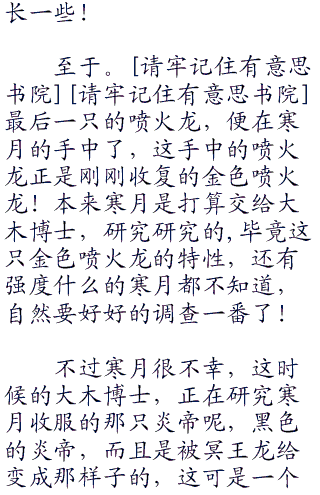 长一些！
至于。[请牢记住有意思
书院][请牢记住有意思书院]
最后一只的喷火龙，便在寒
月的手中了，这手中的喷火
龙正是刚刚收复的金色喷火
龙！本来寒月是打算交给大
木博士，研究研究的，毕竟这
只金色喷火龙的特性，还有
强度什么的寒月都不知道，
自然要好好的调查一番了！
不过寒月很不幸，这时
候的大木博士，正在研究寒
月收服的那只炎帝呢，黑色
的炎帝，而且是被冥王龙给
变成那样子的，这可是一个